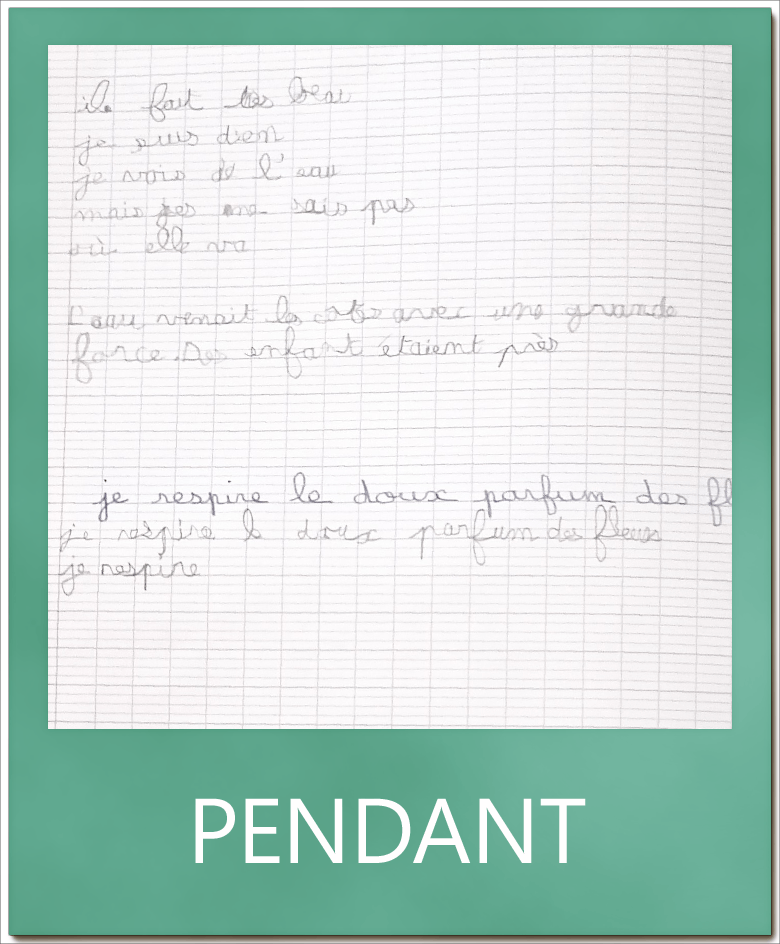 il fait très beau
je suis
je vois de l'eau
mais ne sais pas
où elle va
L'eau venait les avec une grande
force. Des enfant étaient près
je respire le doux parfum des fl
je respire le doux parfum des fleurs
je respire
PENDANT